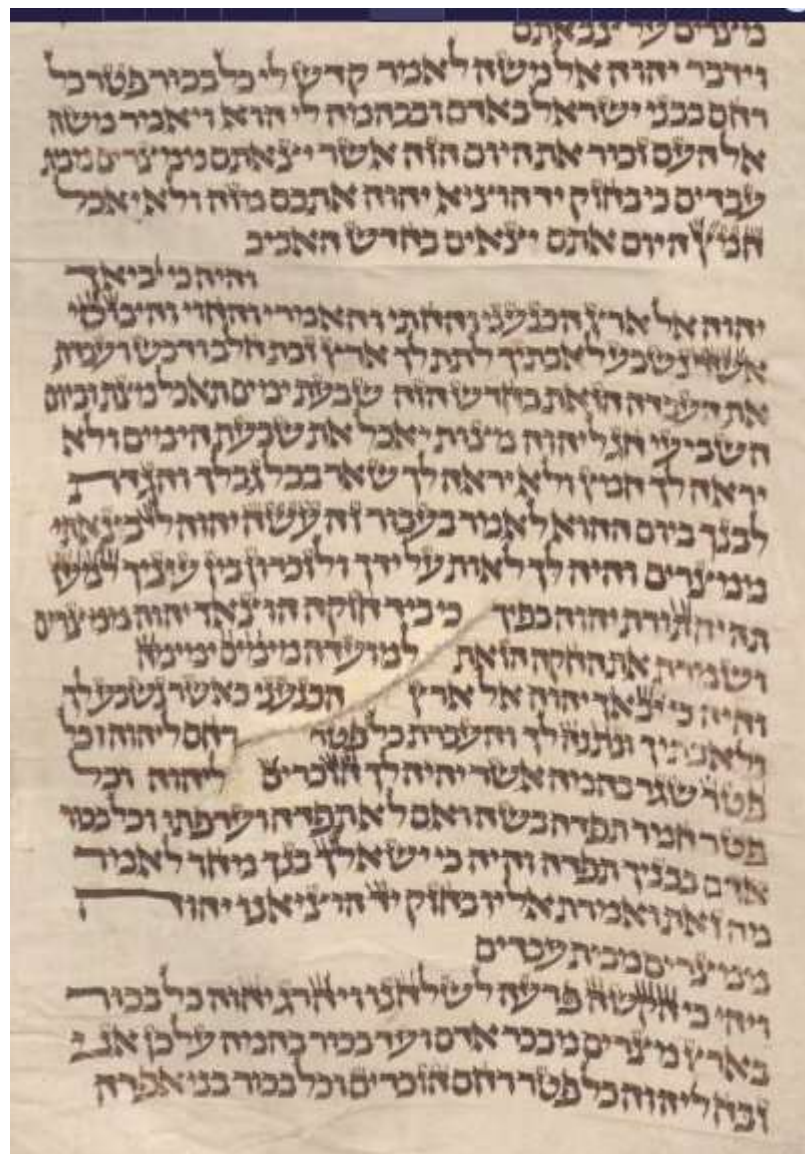 מצרים על צבאתם
וידבר יהוה אל משה לאמר קדש לי כל בכור פטר כל
רחם בבני ישראל באדם ובבהמה לי הוא ויאמר משה
אל העם זכור את היום הזה אשר יצאתם ממצרים מבית
עבדים כי בחזק יד הוציא יהוה אתכם מזה ולא יאכל
חמץ היום אתם יצאים בחדש האביב
והיה כי יביאך
יהוה אל ארץ הכנעני והחתי והאמרי והחוי והיבוסי
אשר נשבע לאבתיך לתת לך ארץ זבת חלב ודבש ועבדת
את העבדה הזאת בחדש הזה שבעת ימים תאכל מצת וביום
השביעי חג ליהוה מצות יאכל את שבעת הימים ולא
יראה לך חמץ ולא יראה לך שאר בכל גבלך והגדת
לבנך ביום ההוא לאמר בעבור זה עשה יהוה לי בצאתי
ממצרים והיה לך לאות על ידך ולזכרון בין עיניך למען
תהיה תורת יהוה בפיך כי ביד חזקה הוצאך יהוה ממצרים
ושמרת את החקה הזאת למועדה מימים ימימה
והיה כי יבאך יהוה אל ארץ הכנעני כאשר נשבע לך
ולאבתיך ונתנה לך והעברת כל פטר רחם ליהוה וכל
פטר שגר בהמה אשר יהיה לך הזכרים ליהוה וכל
פטר חמר תפדה בשה ואם לא תפדה וערפתו וכל בכור
אדם בבניך תפדה והיה כי ישאלך בנך מחר לאמר
מה זאת ואמרת אליו בחזק יד הוציאנו יהוה
ממצרים מבית עבדים
ויהי כי הקשה פרעה לשלחנו ויהרג יהוה כל בכור
בארץ מצרים מבכר אדם ועד בכור בהמה על כן אני
זבח ליהוה כל פטר רחם הזכרים וכל בכור בני אפדה